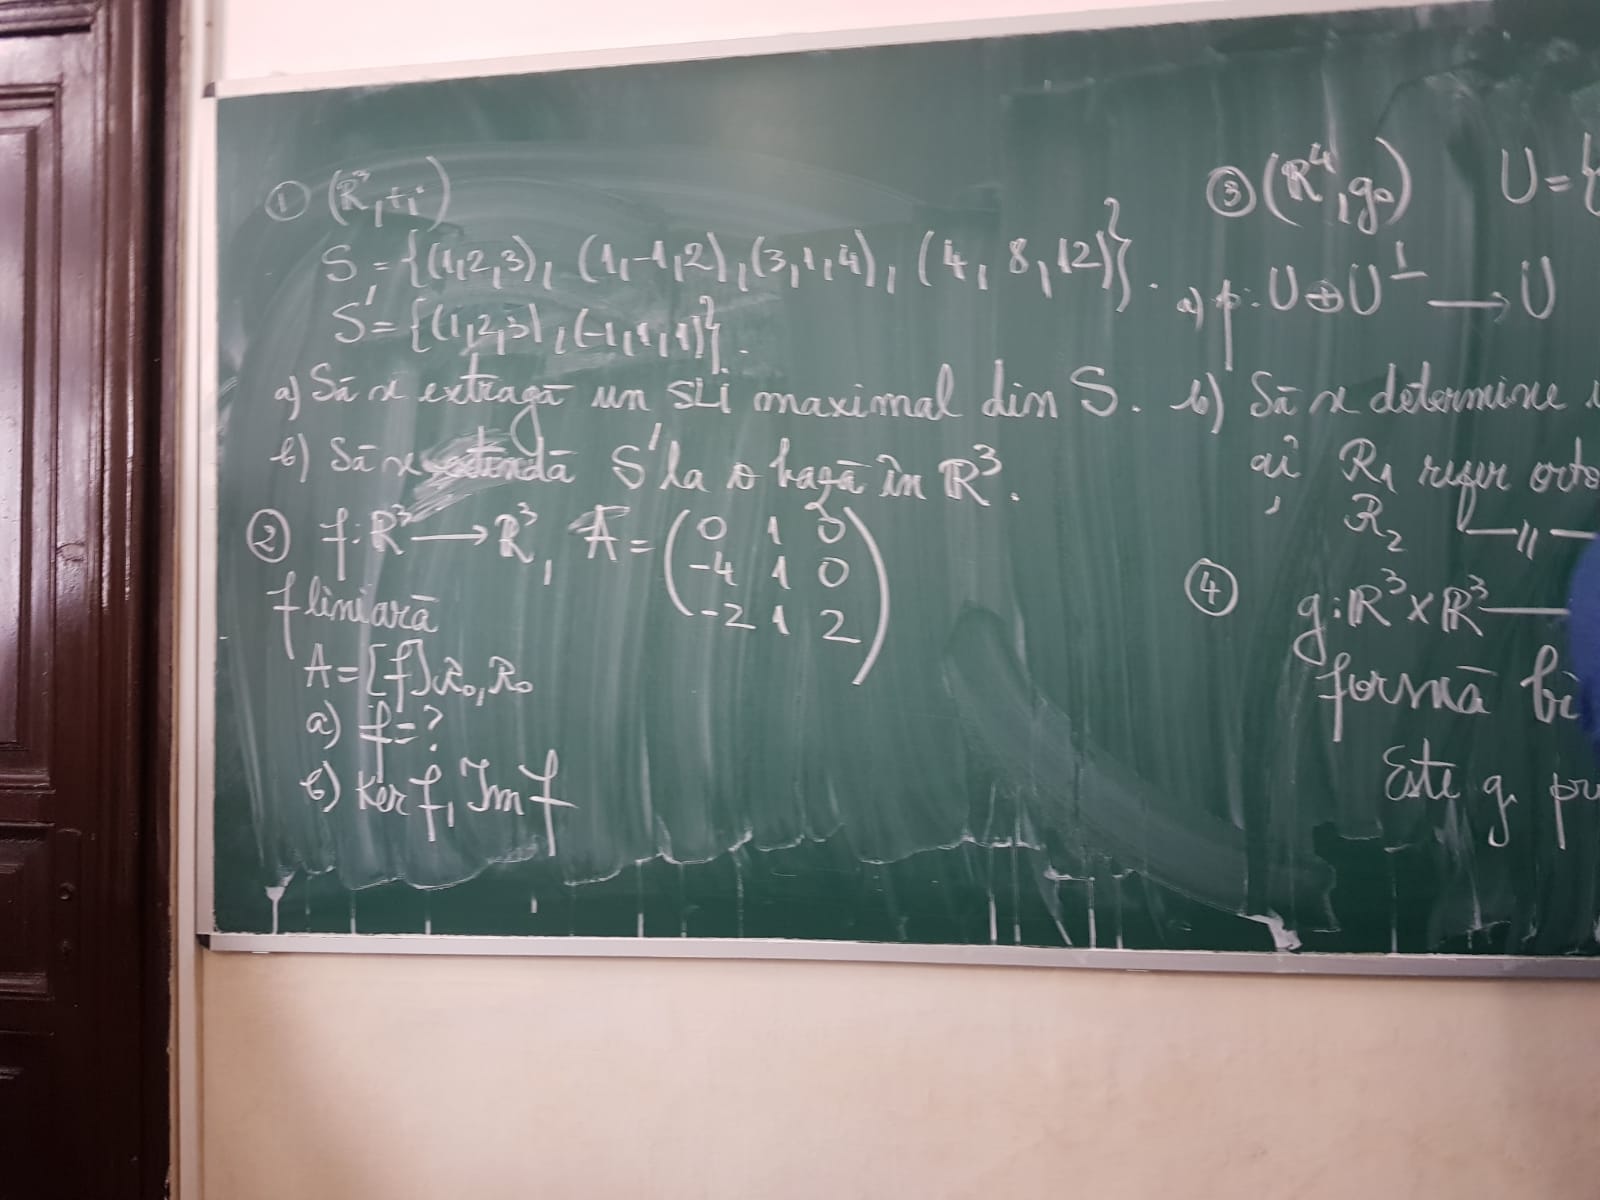 ① (R³,+,·)
S = {(1,2,3), (1,-1,2), (3,1,4), (4, 8, 12)}.
S' = {(1,2,3), (-1,1,1)}.
a) Să se extragă un SLI maximal din S.
b) Să se extindă S' la o bază în R³.
② f: R³ → R³, A = (0 1 3
-4 1 0
-2 1 2)
f liniară
A = [f]R₀,R₀
a) f = ?
b) Ker f, Im f
③ (R⁴, g₀) U = {
a) p: U ⊕ U^⊥ → U
b) Să se determine
aî R₁ reper orto
R₂ —〃—
④ g: R³ × R³ —
formă bi
Este g